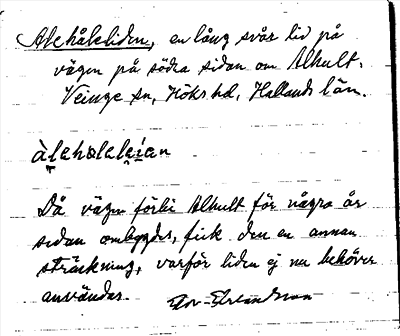 Alehåleliden, en lång svår lid på
vägen på södra sidan om Alhult.
Veinge sn, Höks hd, Hallands län.
àlehåleleían
Då vägen förbi Alhult för några år
sidan ombygdes, fick den en annan
sträckning, varför liden ej nu behöver
användas.